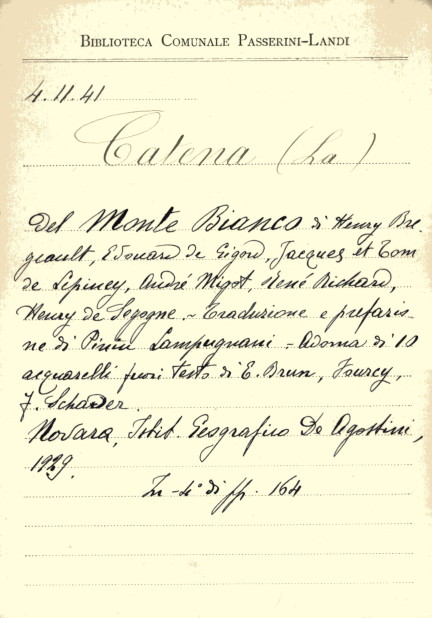 BIBLIOTECA COMUNALE PASSERINI-LANDI
4.11.41
Catena (La)
del Monte Bianco di Henry Bre
geault, Edouard de Gigord, Jacques et Tom
de Lépiney, André Migot, René Richard,
Henry de Ségogne. - Traduzione e prefazio-
ne di Pinin Lampugnani - Adorna di 10
acquarelli fuori testo di E. Brun, Fourcy,
J. Schader.
Novara, Istit. Geografico De Agostini,
1929.
In-4° di pp. 164